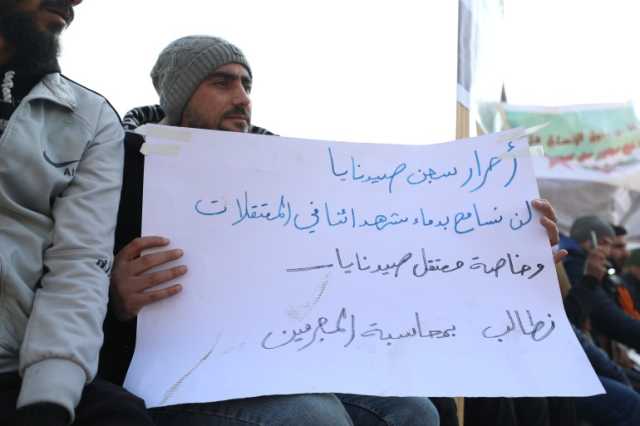 أحرار سجن صيدنايا
لن نسامح بدماء شهدائنا في المعتقلات
وخاصة معتقل صيدنايا
نطالب بمحاسبة المجرمين